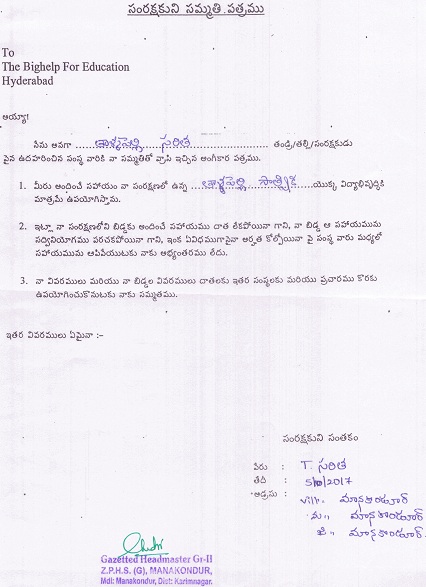 సంరక్షకుని సమ్మతి పత్రము
To
The Bighelp For Education
Hyderabad
అయ్యా!
పేను అనగా .......... సరిత .......... తండ్రి/తల్లి/సంరక్షకుడు
పైన ఉదహరించిన సంస్థ వారికి నా సమ్మతితో వ్రాసి ఇచ్చిన అంగీకార పత్రము.
1. మీరు అందించే సహాయం నా సంరక్షణలో ఉన్న .......... సాత్విక .......... యొక్క విద్యాభివృద్ధికి
మాత్రమే ఉపయోగిస్తాము.
2. ఇట్లా నా సంరక్షణలోని బిడ్డకు అందించే సహాయము దాత లేకపోయినా గాని, నా బిడ్డ ఆ సహాయమును
సద్వినియోగము పరచకపోయినా గాని, ఇంక ఏవిధముగానైనా అర్హత కోల్పోయినా పై సంస్థ వారు మధ్యలో
సహాయమును ఆపివేయుటకు నాకు అభ్యంతరము లేదు.
3. నా వివరములు మరియు నా బిడ్డల వివరములు దాతలకు ఇతర సంస్థలకు మరియు ప్రచారము కొరకు
ఉపయోగించుకొనుటకు నాకు సమ్మతము.
ఇతర వివరములు ఏమైనా :-
సంరక్షకుని సంతకం
పేరు : T. సరిత
తేది : 5/10/2017
అడ్రసు : Vill. మానకొండూర్
మ,, మానకొండూర్
జి,, మానకొండూర్
Gazetted Headmaster Gr-II
Z.P.H.S. (G), MANAKONDUR,
Mdl: Manakondur, Dist: Karimnagar.